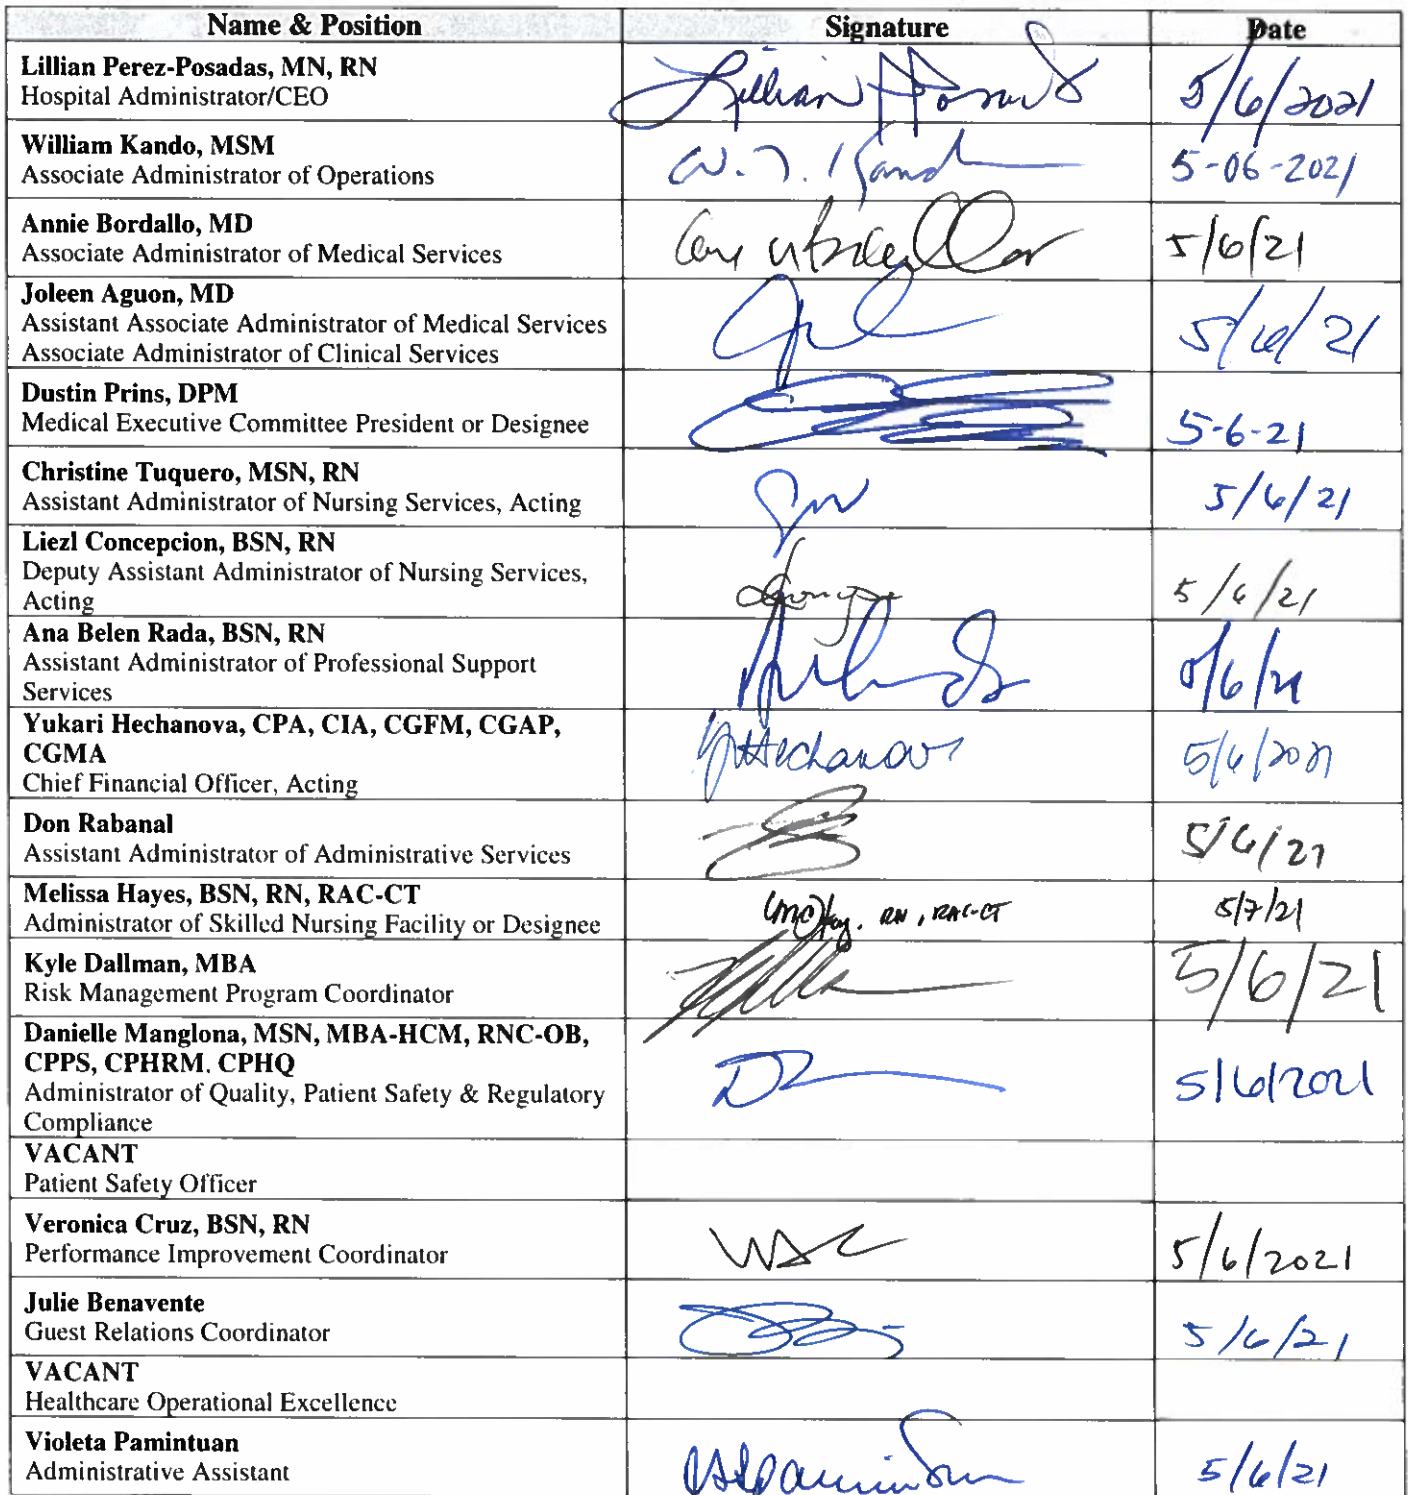 Name & Position Signature Date
Lillian Perez-Posadas, MN, RN
Hospital Administrator/CEO
5/6/2021
William Kando, MSM
Associate Administrator of Operations
W. J. Kando 5-06-2021
Annie Bordallo, MD
Associate Administrator of Medical Services
5/6/21
Joleen Aguon, MD
Assistant Associate Administrator of Medical Services
Associate Administrator of Clinical Services
5/6/21
Dustin Prins, DPM
Medical Executive Committee President or Designee
5-6-21
Christine Tuquero, MSN, RN
Assistant Administrator of Nursing Services, Acting
5/6/21
Liezl Concepcion, BSN, RN
Deputy Assistant Administrator of Nursing Services,
Acting
5/6/21
Ana Belen Rada, BSN, RN
Assistant Administrator of Professional Support
Services
5/6/21
Yukari Hechanova, CPA, CIA, CGFM, CGAP,
CGMA
Chief Financial Officer, Acting
YHechanova 5/6/2021
Don Rabanal
Assistant Administrator of Administrative Services
5/6/21
Melissa Hayes, BSN, RN, RAC-CT
Administrator of Skilled Nursing Facility or Designee
RN, RAC-CT 5/7/21
Kyle Dallman, MBA
Risk Management Program Coordinator
5/6/21
Danielle Manglona, MSN, MBA-HCM, RNC-OB,
CPPS, CPHRM. CPHQ
Administrator of Quality, Patient Safety & Regulatory
Compliance
5/6/2021
VACANT
Patient Safety Officer
Veronica Cruz, BSN, RN
Performance Improvement Coordinator
5/6/2021
Julie Benavente
Guest Relations Coordinator
5/6/21
VACANT
Healthcare Operational Excellence
Violeta Pamintuan
Administrative Assistant
5/6/21